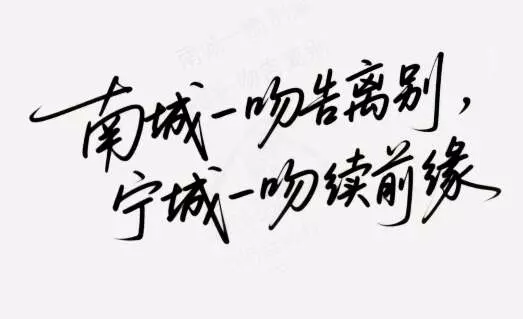 南城一吻告离别，
宁城一吻续前缘